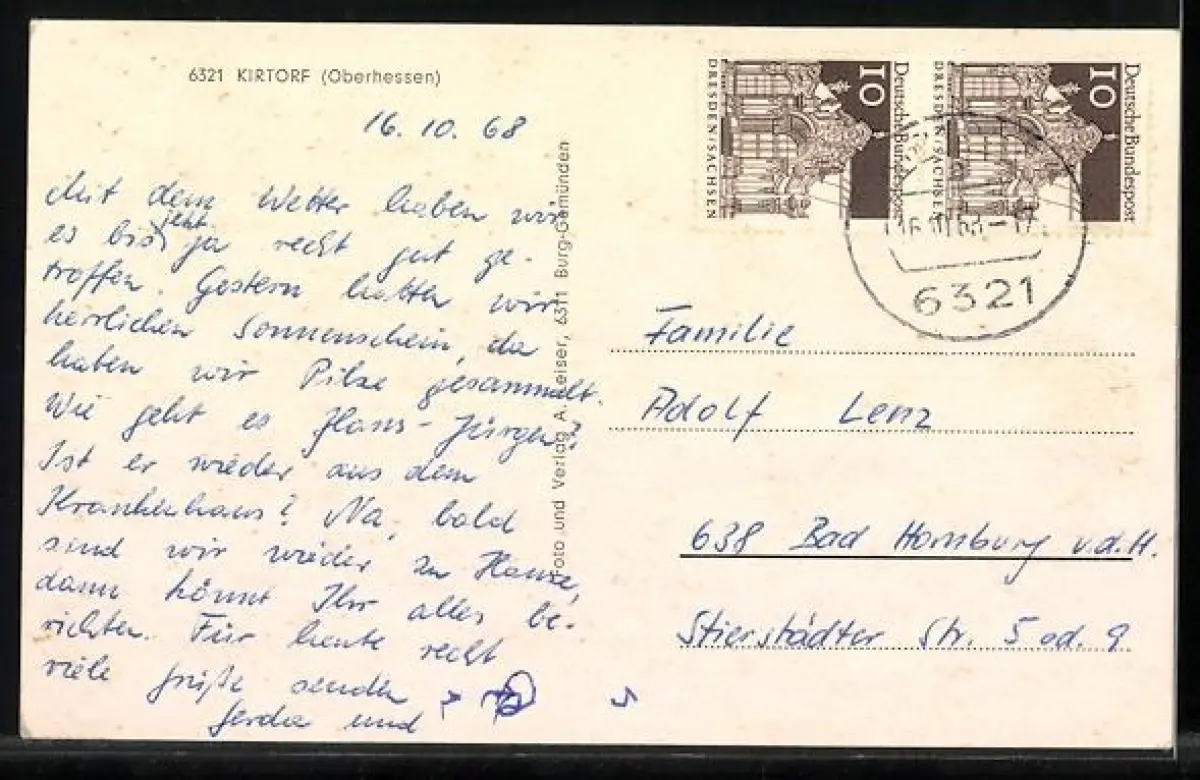 6321 KIRTORF (Oberhessen)
16. 10. 68
Mit dem Wetter haben wir
es bis jetzt ja recht gut ge-
troffen. Gestern hatten wir
herrlichen Sonnenschein, da
haben wir Pilze gesammelt.
Wie geht es Hans-Jürgen?
Ist er wieder aus dem
Krankenhaus? Na, bald
sind wir wieder zu Hause,
dann könnt Ihr alles be-
richten. Für heute recht
viele Grüße senden
Gerda und
Foto und Verlag A. Leiser, 6311 Burg-Gemünden
DRESDEN/SACHSEN
10
Deutsche Bundespost
DRESDEN/SACHSEN
10
Deutsche Bundespost
6321
Familie
Adolf Lenz
638 Bad Homburg v.d.H.
Stierstädter Str. 5 od. 9